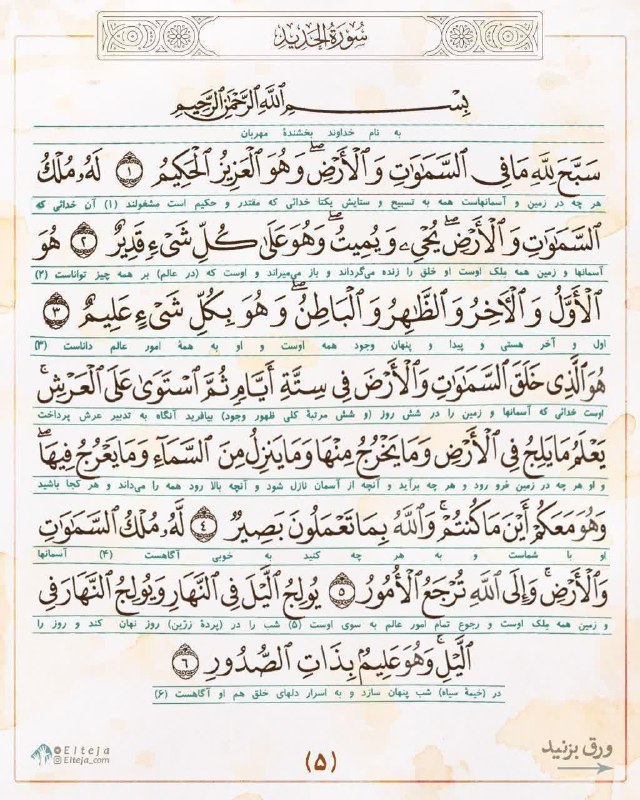 سُورَةُ الحَدِيد
بِسْمِ اللَّهِ الرَّحْمَٰنِ الرَّحِيمِ
به نام خداوند بخشندهٔ مهربان
سَبَّحَ لِلَّهِ مَا فِي السَّمَٰوَٰتِ وَالْأَرْضِ ۖ وَهُوَ الْعَزِيزُ الْحَكِيمُ ﴿١﴾ لَهُ مُلْكُ
هر چه در زمین و آسمانهاست همه به تسبیح و ستایش یکتا خدائی که مقتدر و حکیم است مشغولند (۱) آن خدائی که
السَّمَٰوَٰتِ وَالْأَرْضِ ۖ يُحْيِي وَيُمِيتُ ۖ وَهُوَ عَلَىٰ كُلِّ شَيْءٍ قَدِيرٌ ﴿٢﴾ هُوَ
آسمانها و زمین همه ملک اوست او خلق را زنده می‌گرداند و باز می‌میراند و اوست که (در عالم) بر همه چیز تواناست (۲)
الْأَوَّلُ وَالْآخِرُ وَالظَّاهِرُ وَالْبَاطِنُ ۖ وَهُوَ بِكُلِّ شَيْءٍ عَلِيمٌ ﴿٣﴾
اول و آخر هستی و پیدا و پنهان وجود همه اوست و او به همهٔ امور عالم داناست (۳)
هُوَ الَّذِي خَلَقَ السَّمَٰوَٰتِ وَالْأَرْضَ فِي سِتَّةِ أَيَّامٍ ثُمَّ اسْتَوَىٰ عَلَى الْعَرْشِ ۚ
اوست خدائی که آسمانها و زمین را در شش روز (و شش مرتبهٔ کلی ظهور وجود) بیافرید آنگاه به تدبیر عرش پرداخت
يَعْلَمُ مَا يَلِجُ فِي الْأَرْضِ وَمَا يَخْرُجُ مِنْهَا وَمَا يَنزِلُ مِنَ السَّمَاءِ وَمَا يَعْرُجُ فِيهَا ۖ
و او هر چه در زمین فرو رود و هر چه برآید و آنچه از آسمان نازل شود و آنچه بالا رود همه را می‌داند و هر کجا باشید
وَهُوَ مَعَكُمْ أَيْنَ مَا كُنتُمْ ۚ وَاللَّهُ بِمَا تَعْمَلُونَ بَصِيرٌ ﴿٤﴾ لَّهُ مُلْكُ السَّمَٰوَٰتِ
او با شماست و به هر چه کنید به خوبی آگاهست (۴) آسمانها
وَالْأَرْضِ ۚ وَإِلَى اللَّهِ تُرْجَعُ الْأُمُورُ ﴿٥﴾ يُولِجُ اللَّيْلَ فِي النَّهَارِ وَيُولِجُ النَّهَارَ فِي
و زمین همه ملک اوست و رجوع تمام امور عالم به سوی اوست (۵) شب را در (پردهٔ زرّین) روز نهان کند و روز را
اللَّيْلِ ۚ وَهُوَ عَلِيمٌ بِذَاتِ الصُّدُورِ ﴿٦﴾
در (خیمهٔ سیاه) شب پنهان سازد و به اسرار دلهای خلق هم او آگاهست (۶)
Elteja
Elteja_com
(۵)
ورق بزنید